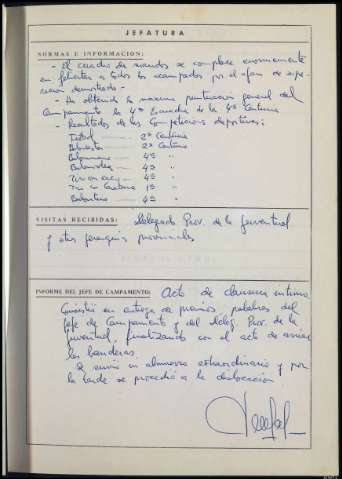 JEFATURA
NORMAS E INFORMACION:
- El cuadro de mandos se complace enormemente
en felicitar a todos los acampados por el afan de supe-
racion demostrado -
- Ha obtenido la maxima puntuacion general del
Campamento la 4ª Escuadra de la 4ª Centuria
- Resultados de las Competiciones deportivas:
Futbol 2ª Centuria
Baloncesto 2ª Centuria
Balonmano 4ª "
Balonvolea 4ª "
4ª "
Tiro 1ª "
4ª "
VISITAS RECIBIDAS: Delegado Prov. de la Juventud
y otras jerarquias provinciales
INFORME DEL JEFE DE CAMPAMENTO: Acto de clausura
Consistió en entrega de premios, palabras del
Jefe de Campamento y del Deleg. Prov. de la
Juventud, finalizando con el acto de arriar
las banderas.
Se sirvio un almuerzo extraordinario y por
la tarde se procedió a la